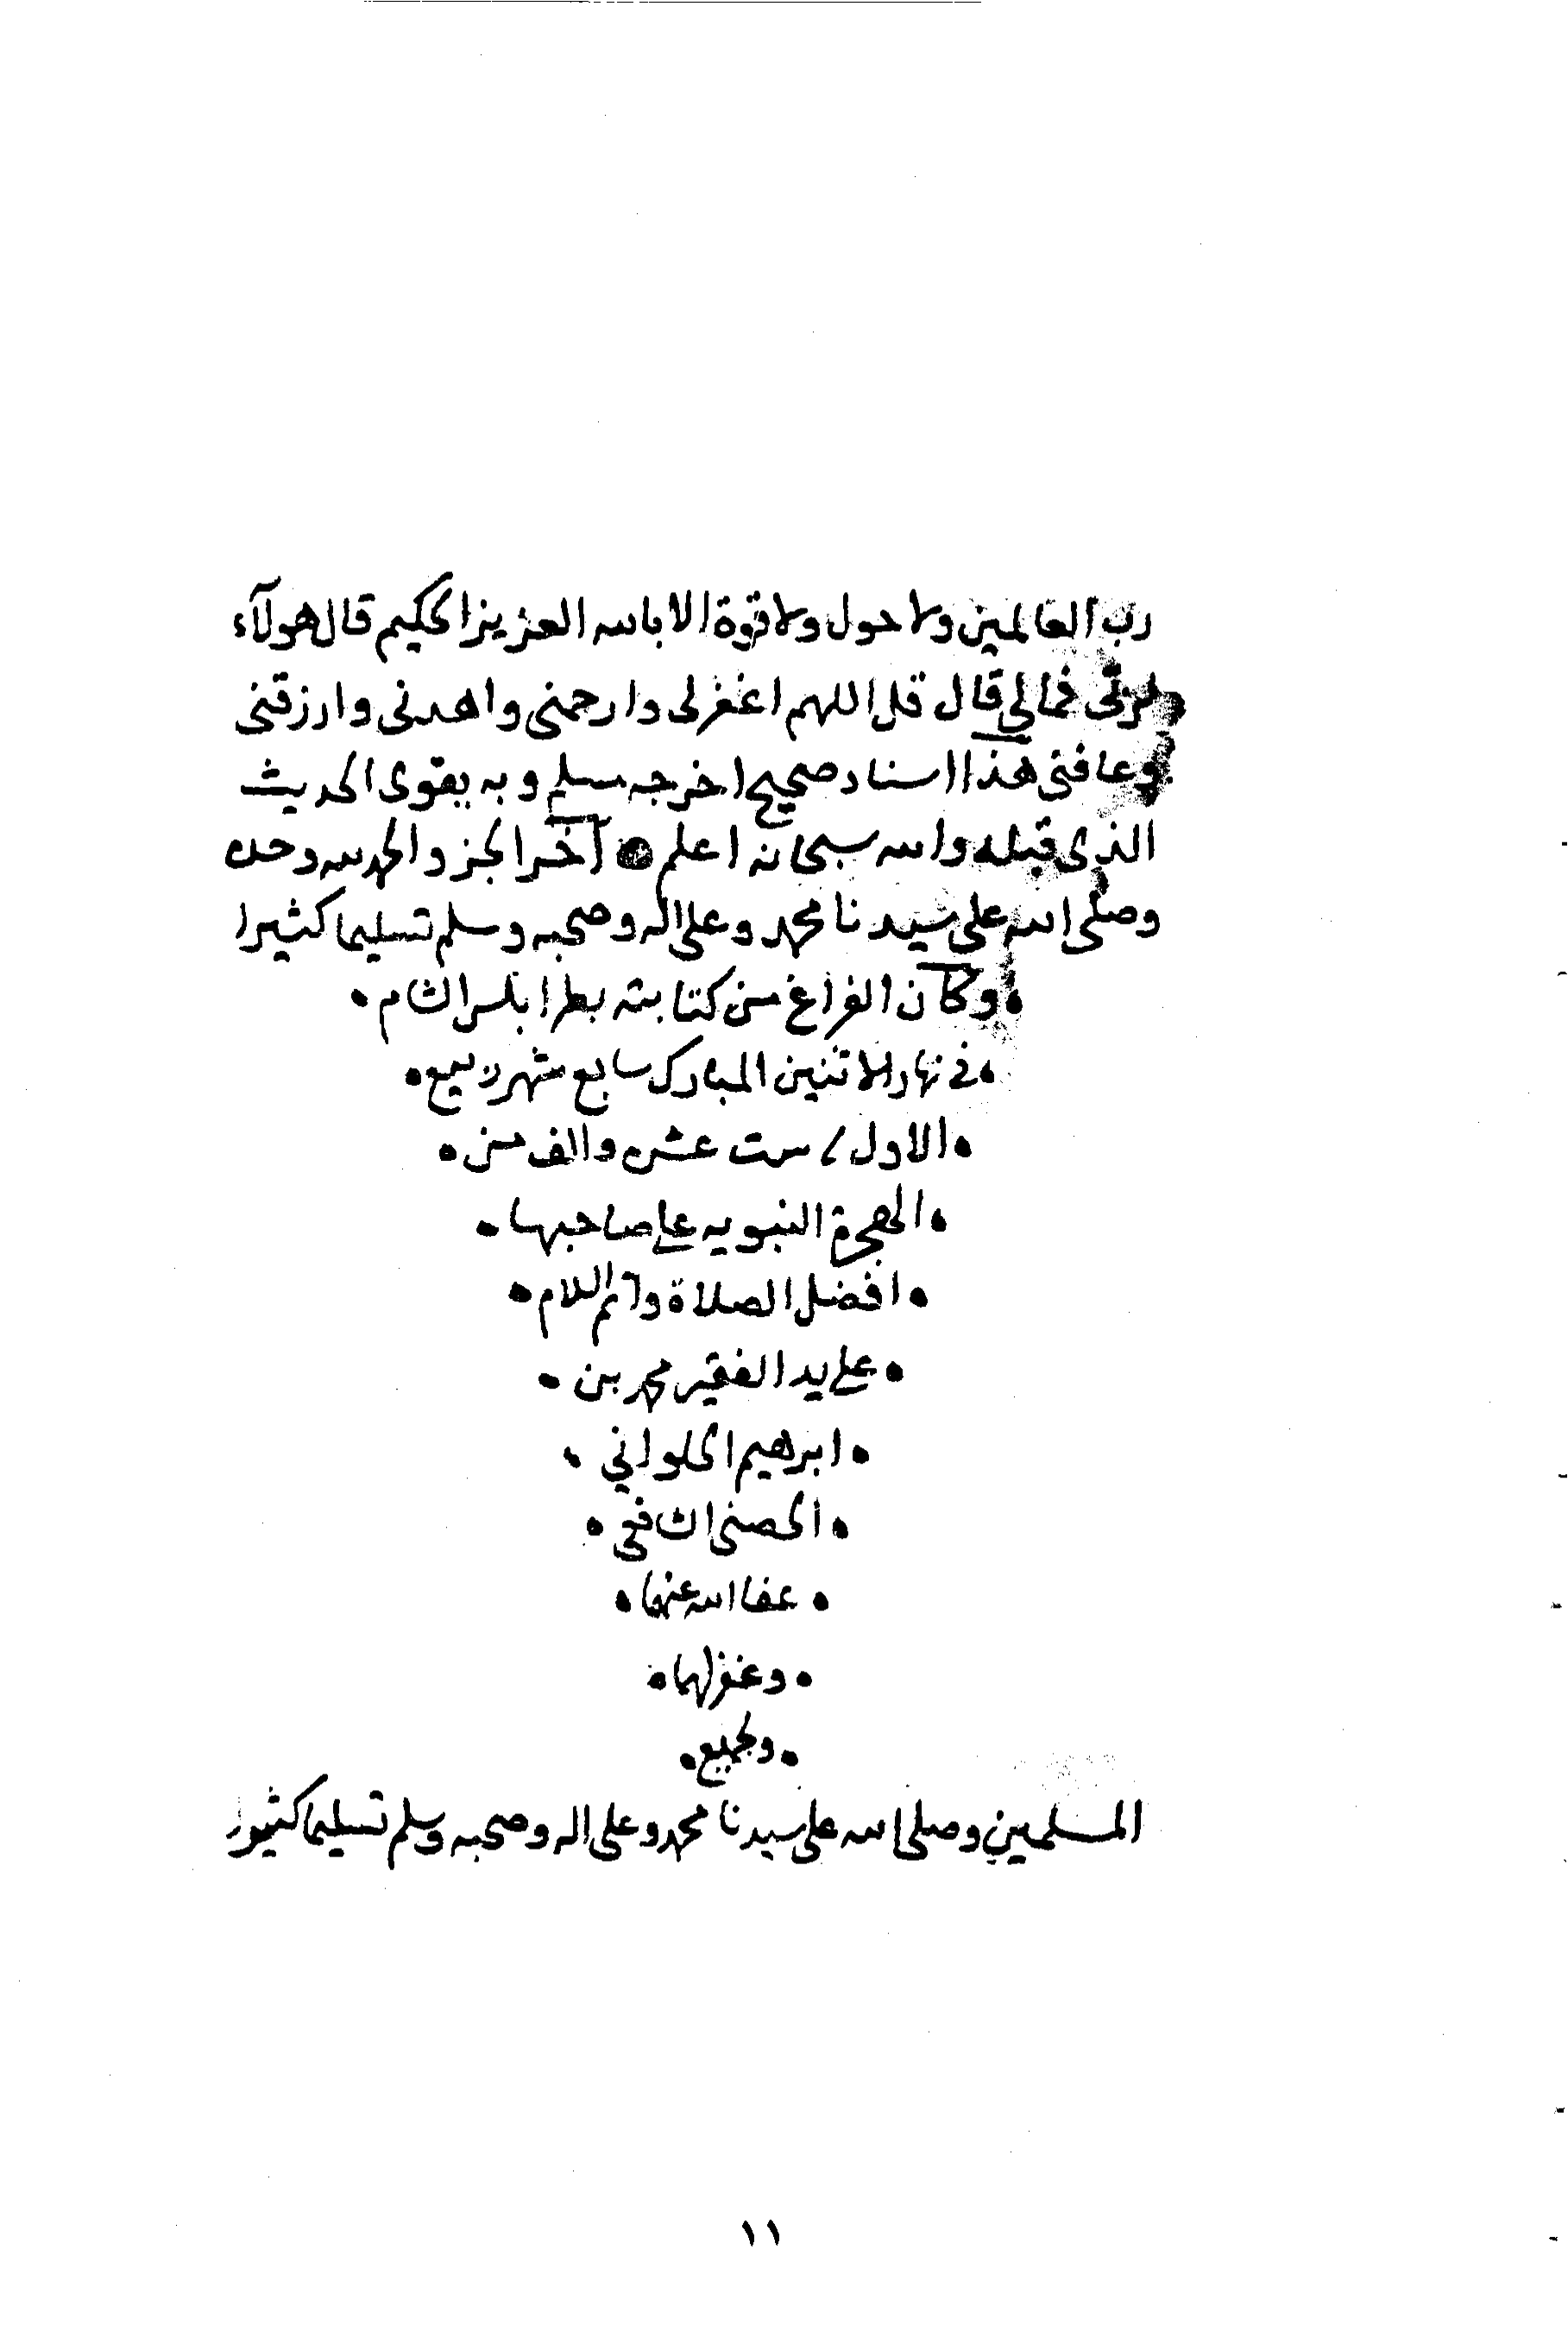 رب العالمين ولا حول ولا قوة الا بالله العزيز الحكيم قال هولآء
لربى فمالي قال قل اللهم اغفر لى وارحمنى واهدنى وارزقنى
وعافنى هذا اسناد صحيح اخرجه مسلم وبه يقوى الحديث
الذى قبله والله سبحانه اعلم آخر الجزء والحمد لله وحده
وصلى الله على سيدنا محمد وعلى اله وصحبه وسلم تسليما كثيرا
وكان الفراغ من كتابته بطرابلس الشام
فى نهار الاثنين المبارك سابع شهر ربيع
الاول ست عشر والف من
الهجرة النبويه على صاحبها
افضل الصلاة واتم السلام
على يد الفقير محمد بن
ابرهيم الحلواني
الحصنى الشافعى
عفا الله عنهما
وغفر لهما
ولجميع
المسلمين وصلى الله على سيدنا محمد وعلى اله وصحبه وسلم تسليما كثيرا
١١